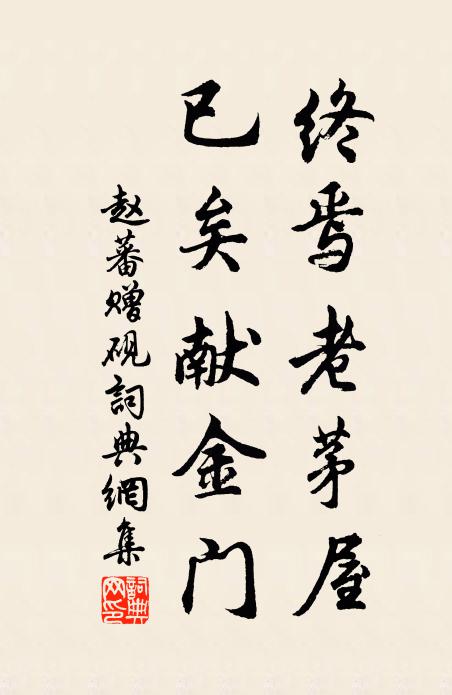 终焉老茅屋
已矣献金门
赵蕃赠砚詞典網集
詞典网印